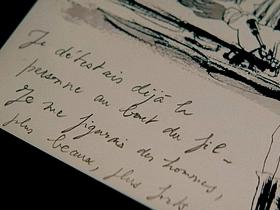 Je détestais déjà la
personne au bout du fil -
Je me figurais des hommes,
plus beaux, plus forts